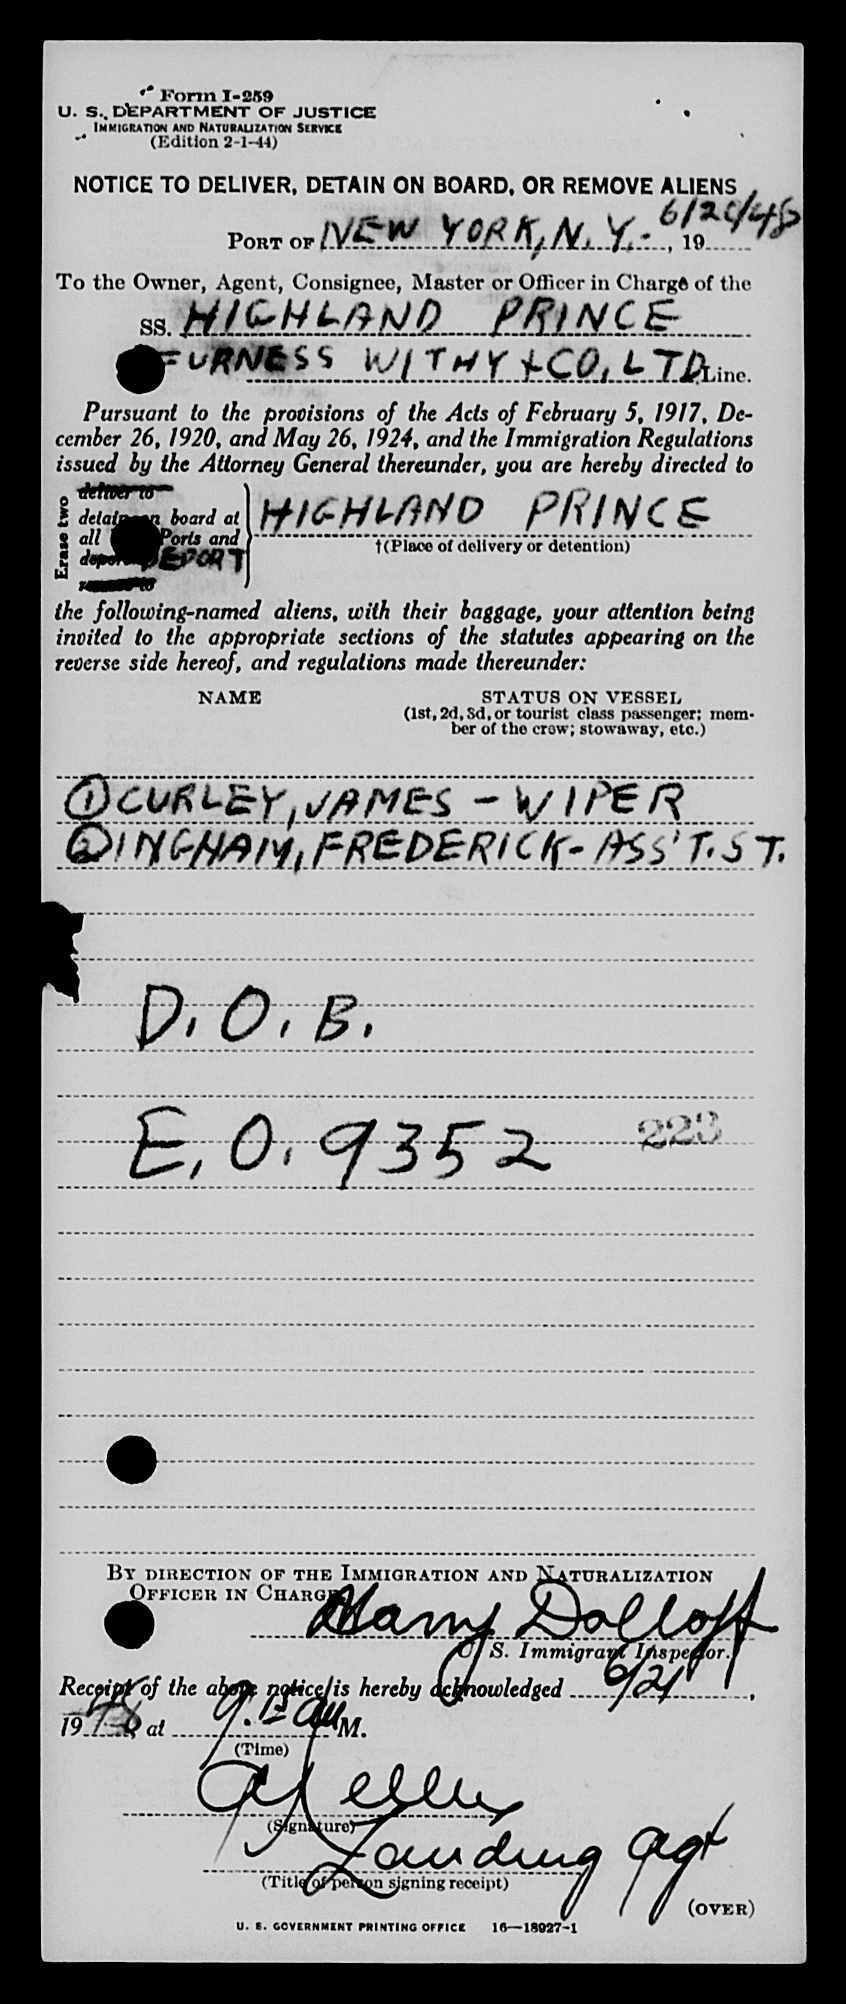 Form I-259
U. S. DEPARTMENT OF JUSTICE
IMMIGRATION AND NATURALIZATION SERVICE
(Edition 2-1-44)
NOTICE TO DELIVER, DETAIN ON BOARD, OR REMOVE ALIENS
PORT OF NEW YORK, N. Y. - , 19
To the Owner, Agent, Consignee, Master or Officer in Charge of the
SS. HIGHLAND PRINCE
FURNESS WITHY + CO, LTD Line.
Pursuant to the provisions of the Acts of February 5, 1917, De-
cember 26, 1920, and May 26, 1924, and the Immigration Regulations
issued by the Attorney General thereunder, you are hereby directed to
Erase two
deliver to
detain on board at HIGHLAND PRINCE
all Ports and †(Place of delivery or detention)
DEPORT
remove to
the following-named aliens, with their baggage, your attention being
invited to the appropriate sections of the statutes appearing on the
reverse side hereof, and regulations made thereunder:
NAME STATUS ON VESSEL
(1st, 2d, 3d, or tourist class passenger; mem-
ber of the crew; stowaway, etc.)
① CURLEY, JAMES - WIPER
② INGHAM, FREDERICK - ASS'T. ST.
D. O. B.
E. O. 9352 223
BY DIRECTION OF THE IMMIGRATION AND NATURALIZATION
OFFICER IN CHARGE
Harry Dolloff
U. S. Immigrant Inspector.
Receipt of the above notice is hereby acknowledged 6/21,
1948 at M.
(Time)
(Signature)
Landing Agt
(Title of person signing receipt)
(OVER)
U. S. GOVERNMENT PRINTING OFFICE 16—18927-1